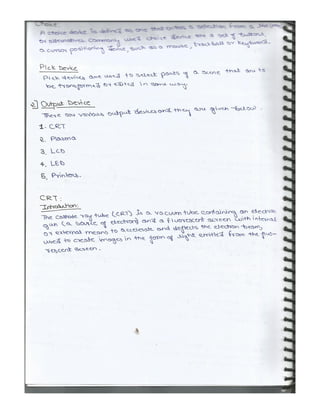 Choice:
A choice device is defined as one that enters a selection from a
of alternatives. Commonly used choice device are a set of buttons,
a cursor positioning device, such as a mouse, trackball or keyboard.
Pick Device
Pick devices are used to select parts of a scene that are to
be transformed or edited in some way.
2) Output Device
There are various output devices and they are given below.
1. CRT
2. Plasma
3. LCD
4. LED
5. Printers.
CRT.
Introduction:
The cathode ray tube (CRT) is a vacuum tube containing an electron
gun (a source of electron) and a fluorescent screen, with internal
or external means to accelerate and deflects the electron beam,
used to create images in the form of light emitted from the fluo-
rescent screen.